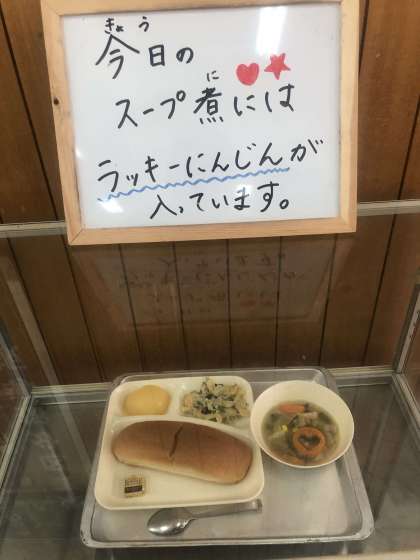 きょう
今日の
スープ煮には
に
ラッキーにんじんが
入っています。